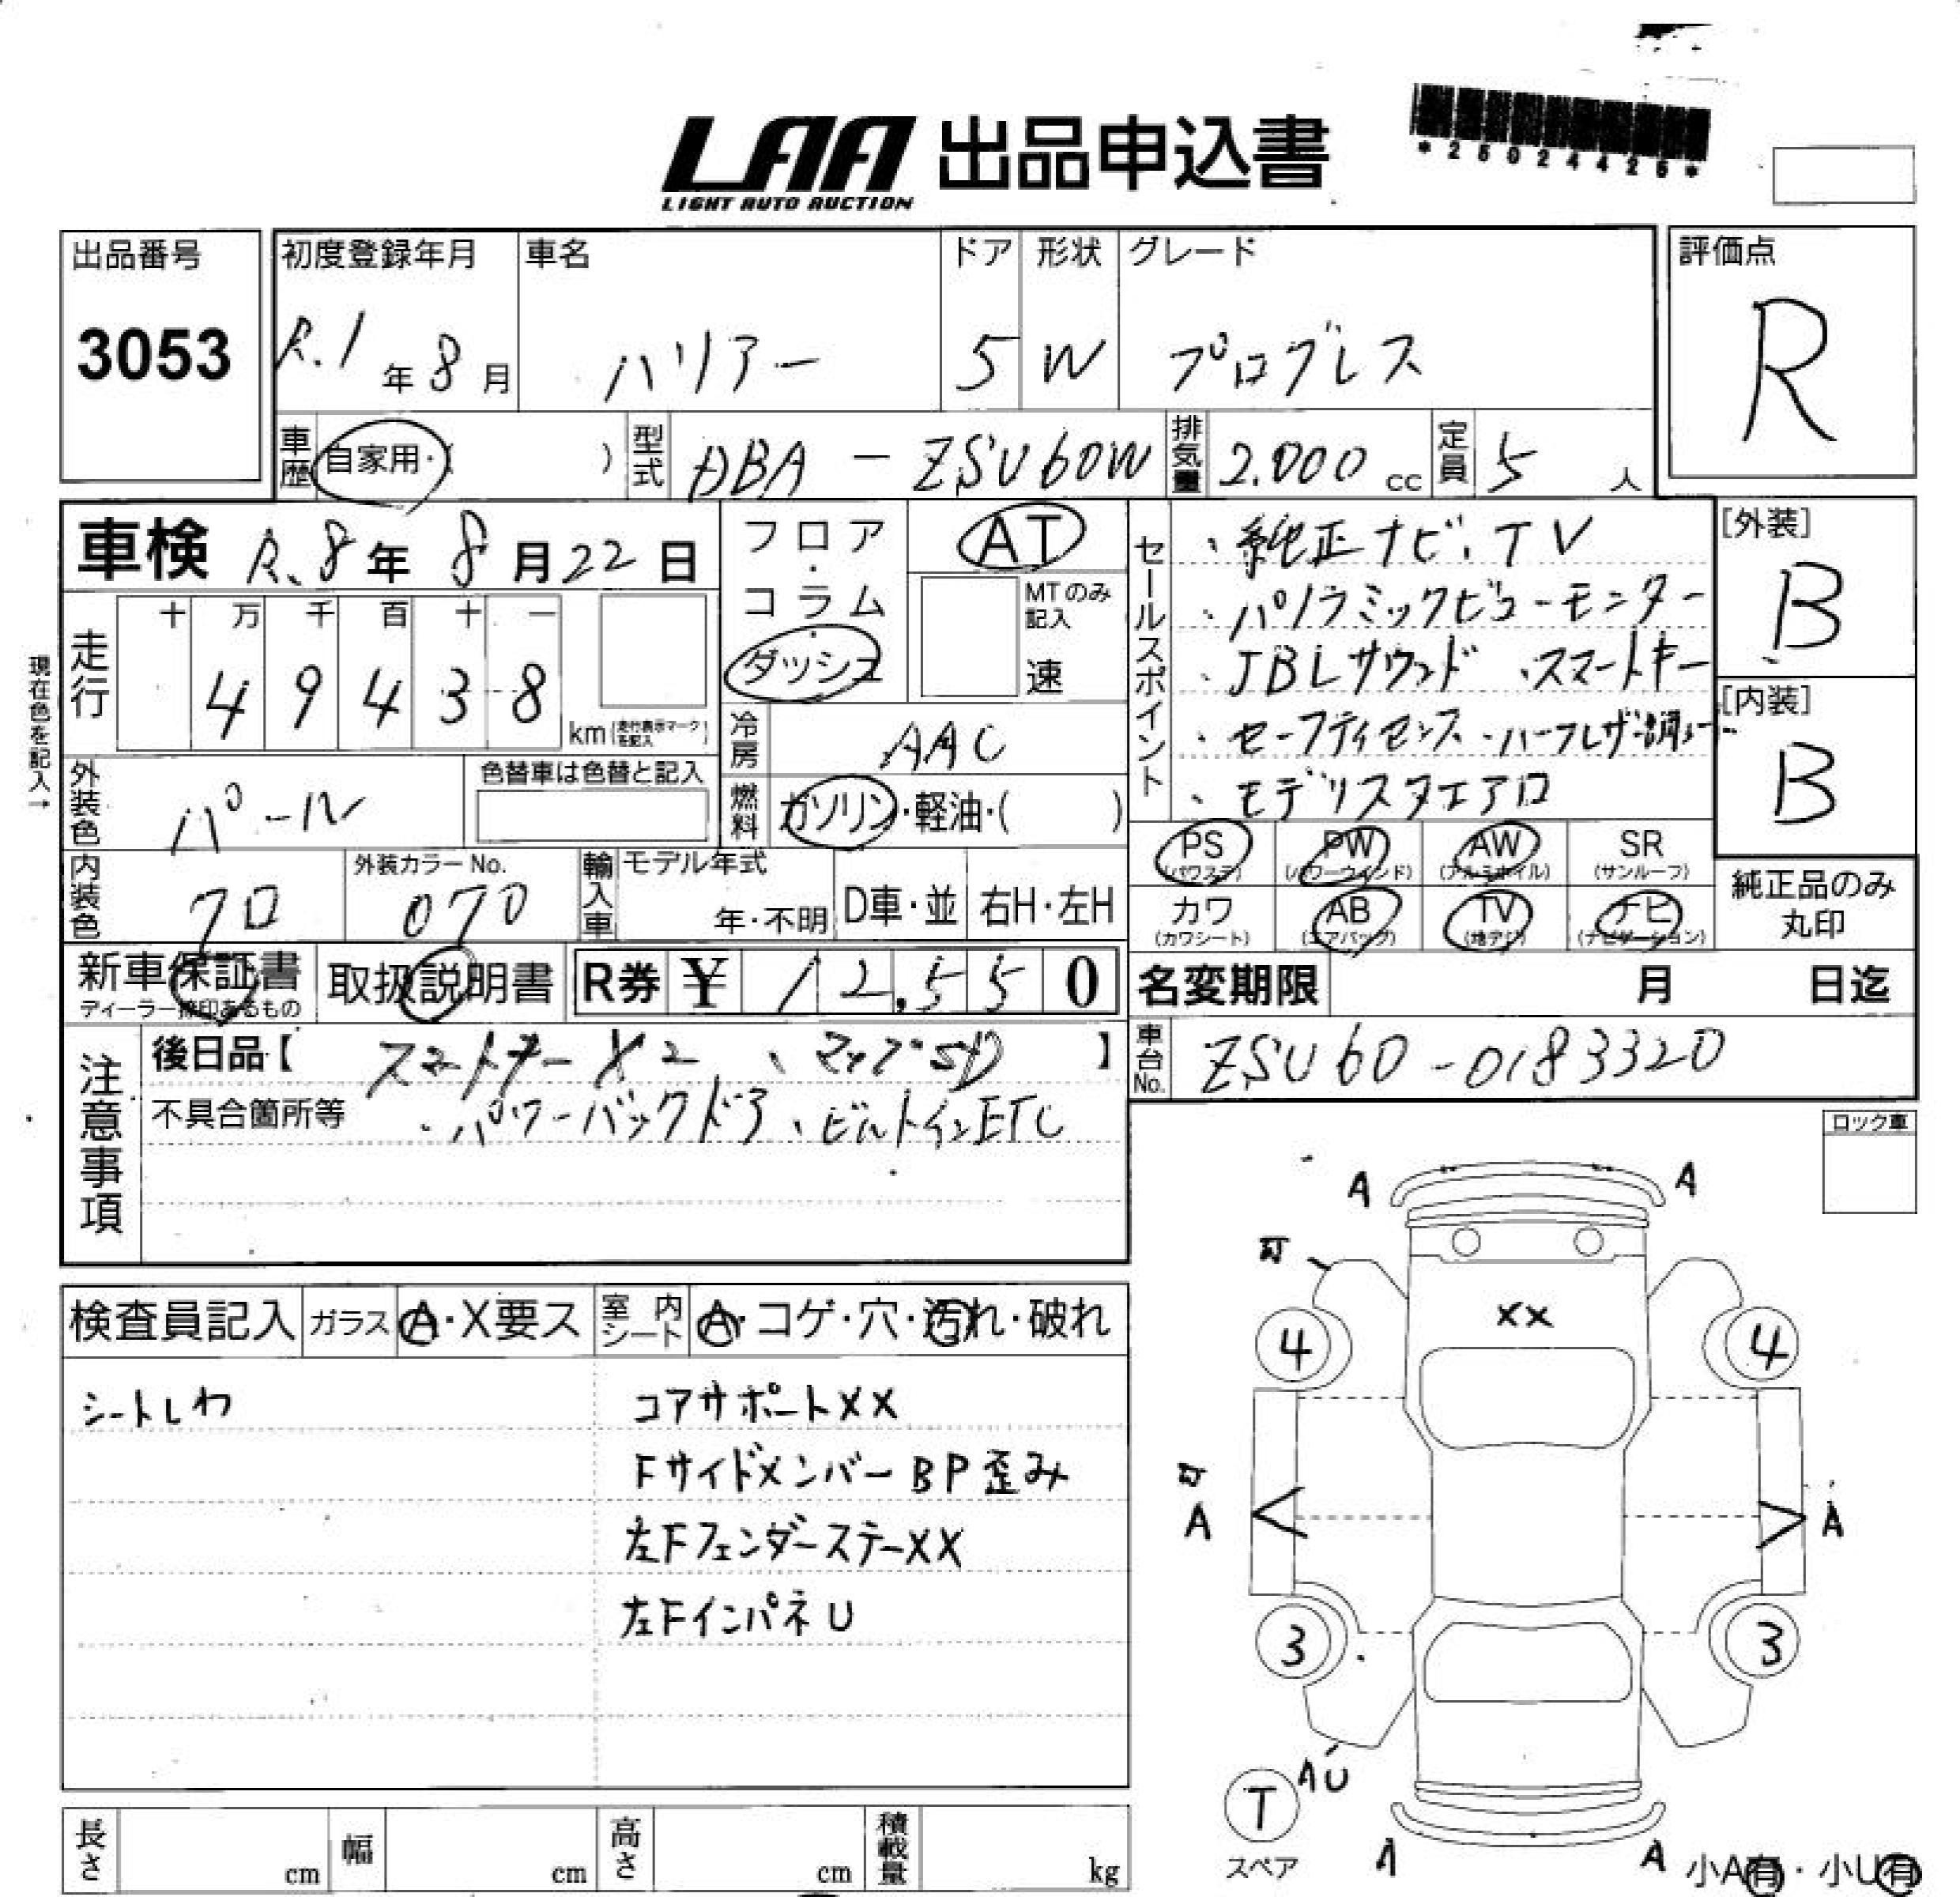 LAA 出品申込書
LIGHT AUTO AUCTION
*25024426*
出品番号
3053
初度登録年月
R.1年8月
車名
ハリアー
ドア
5
形状
W
グレード
プログレス
評価点
R
車歴
自家用・( )
型式
DBA-ZSU60W
排気量
2.000cc
定員
5人
車検 R.8年8月22日
フロア・コラム・ダッシュ
AT
MTのみ記入
速
セールスポイント
・純正ナビ、TV
・パノラミックビューモニター
・JBLサウンド ・スマートキー
・セーフティセンス ・ハーフレザー調シート
・モデリスタエアロ
[外装]
B
[内装]
B
現在色を記入→
走行
十 万 千 百 十 一
4 9 4 3 8
km(走行表示マークを記入)
冷房
AAC
外装色
パール
色替車は色替と記入
燃料
ガソリン・軽油・( )
内装色
クロ
外装カラーNo.
070
輸入車
モデル年式
年・不明
D車・並
右H・左H
PS
(パワステ)
PW
(パワーウィンド)
AW
(アルミホイル)
SR
(サンルーフ)
カワ
(カワシート)
AB
(エアバッグ)
TV
(地デジ)
ナビ
(ナビゲーション)
純正品のみ
丸印
新車保証書
ディーラー捺印あるもの
取扱説明書
R券 ¥ 12,550
名変期限 月 日迄
注意事項
後日品【 スマートキーX2 、マップSD 】
不具合箇所等 ・パワーバックドア、ビルトインETC
車台No.
ZSU60-0183320
ロック車
検査員記入
ガラス
A・X要ス
室内シート
A・コゲ・穴・汚れ・破れ
シートしわ
コアサポートXX
FサイドメンバーBP歪み
左FフェンダーステーXX
左FインパネU
A A
XX
4 4
A A
3 3
AU
T
スペア
A A
小A有・小U有
長さ cm
幅 cm
高さ cm
積載量 kg